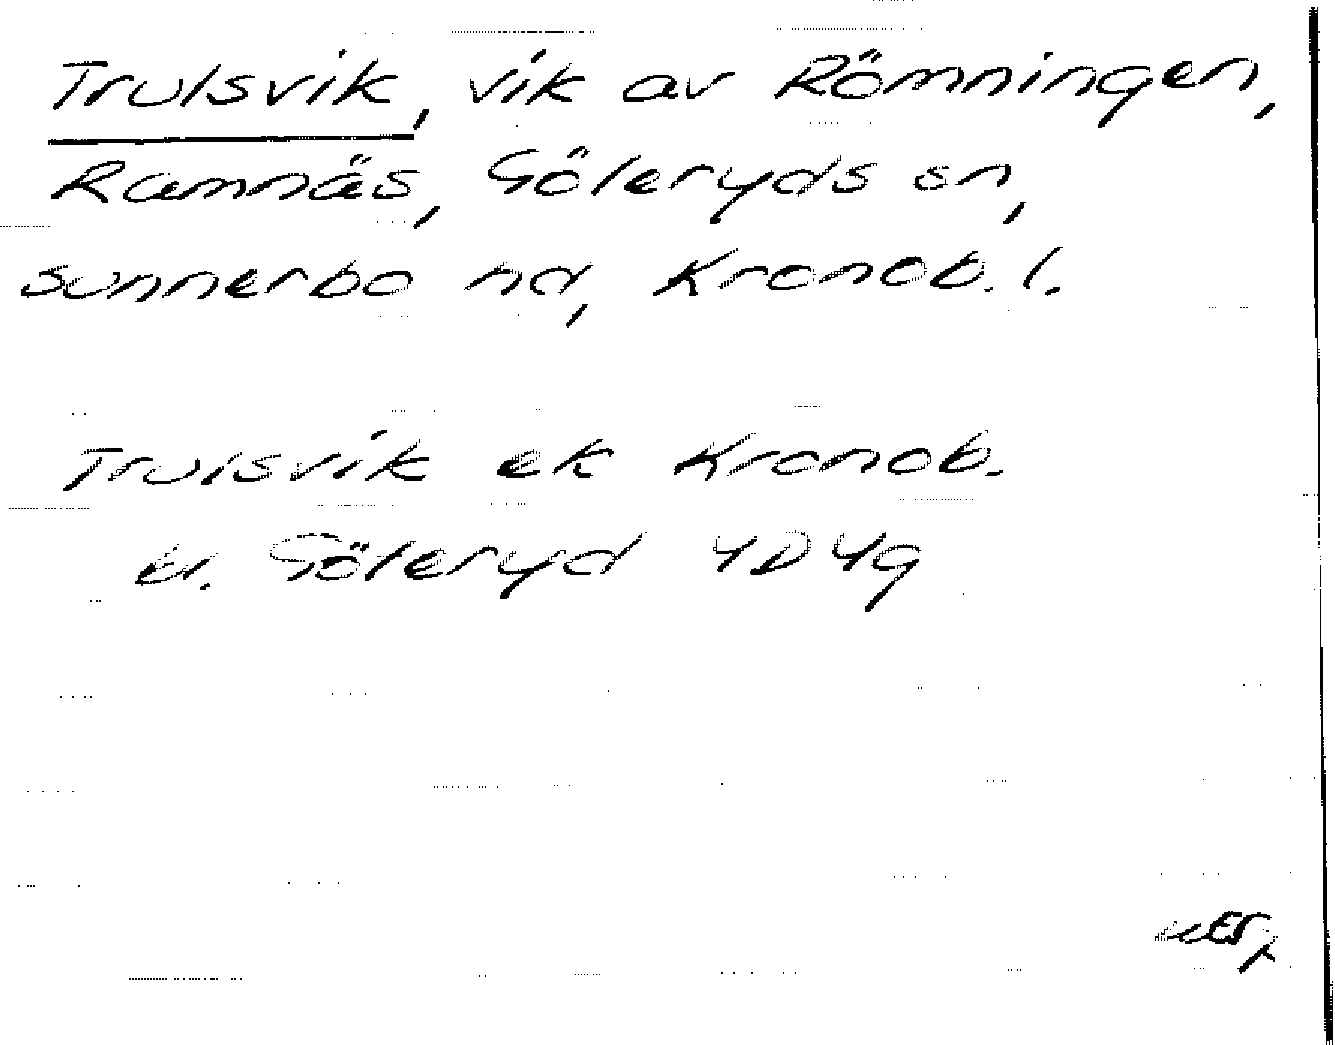 Trulsvik, vik av Römningen,
Ramnäs, Göteryds sn,
Sunnerbo hd, Kronob. l.
Trulsvik ek Kronob.
bl. Göteryd 4D4g